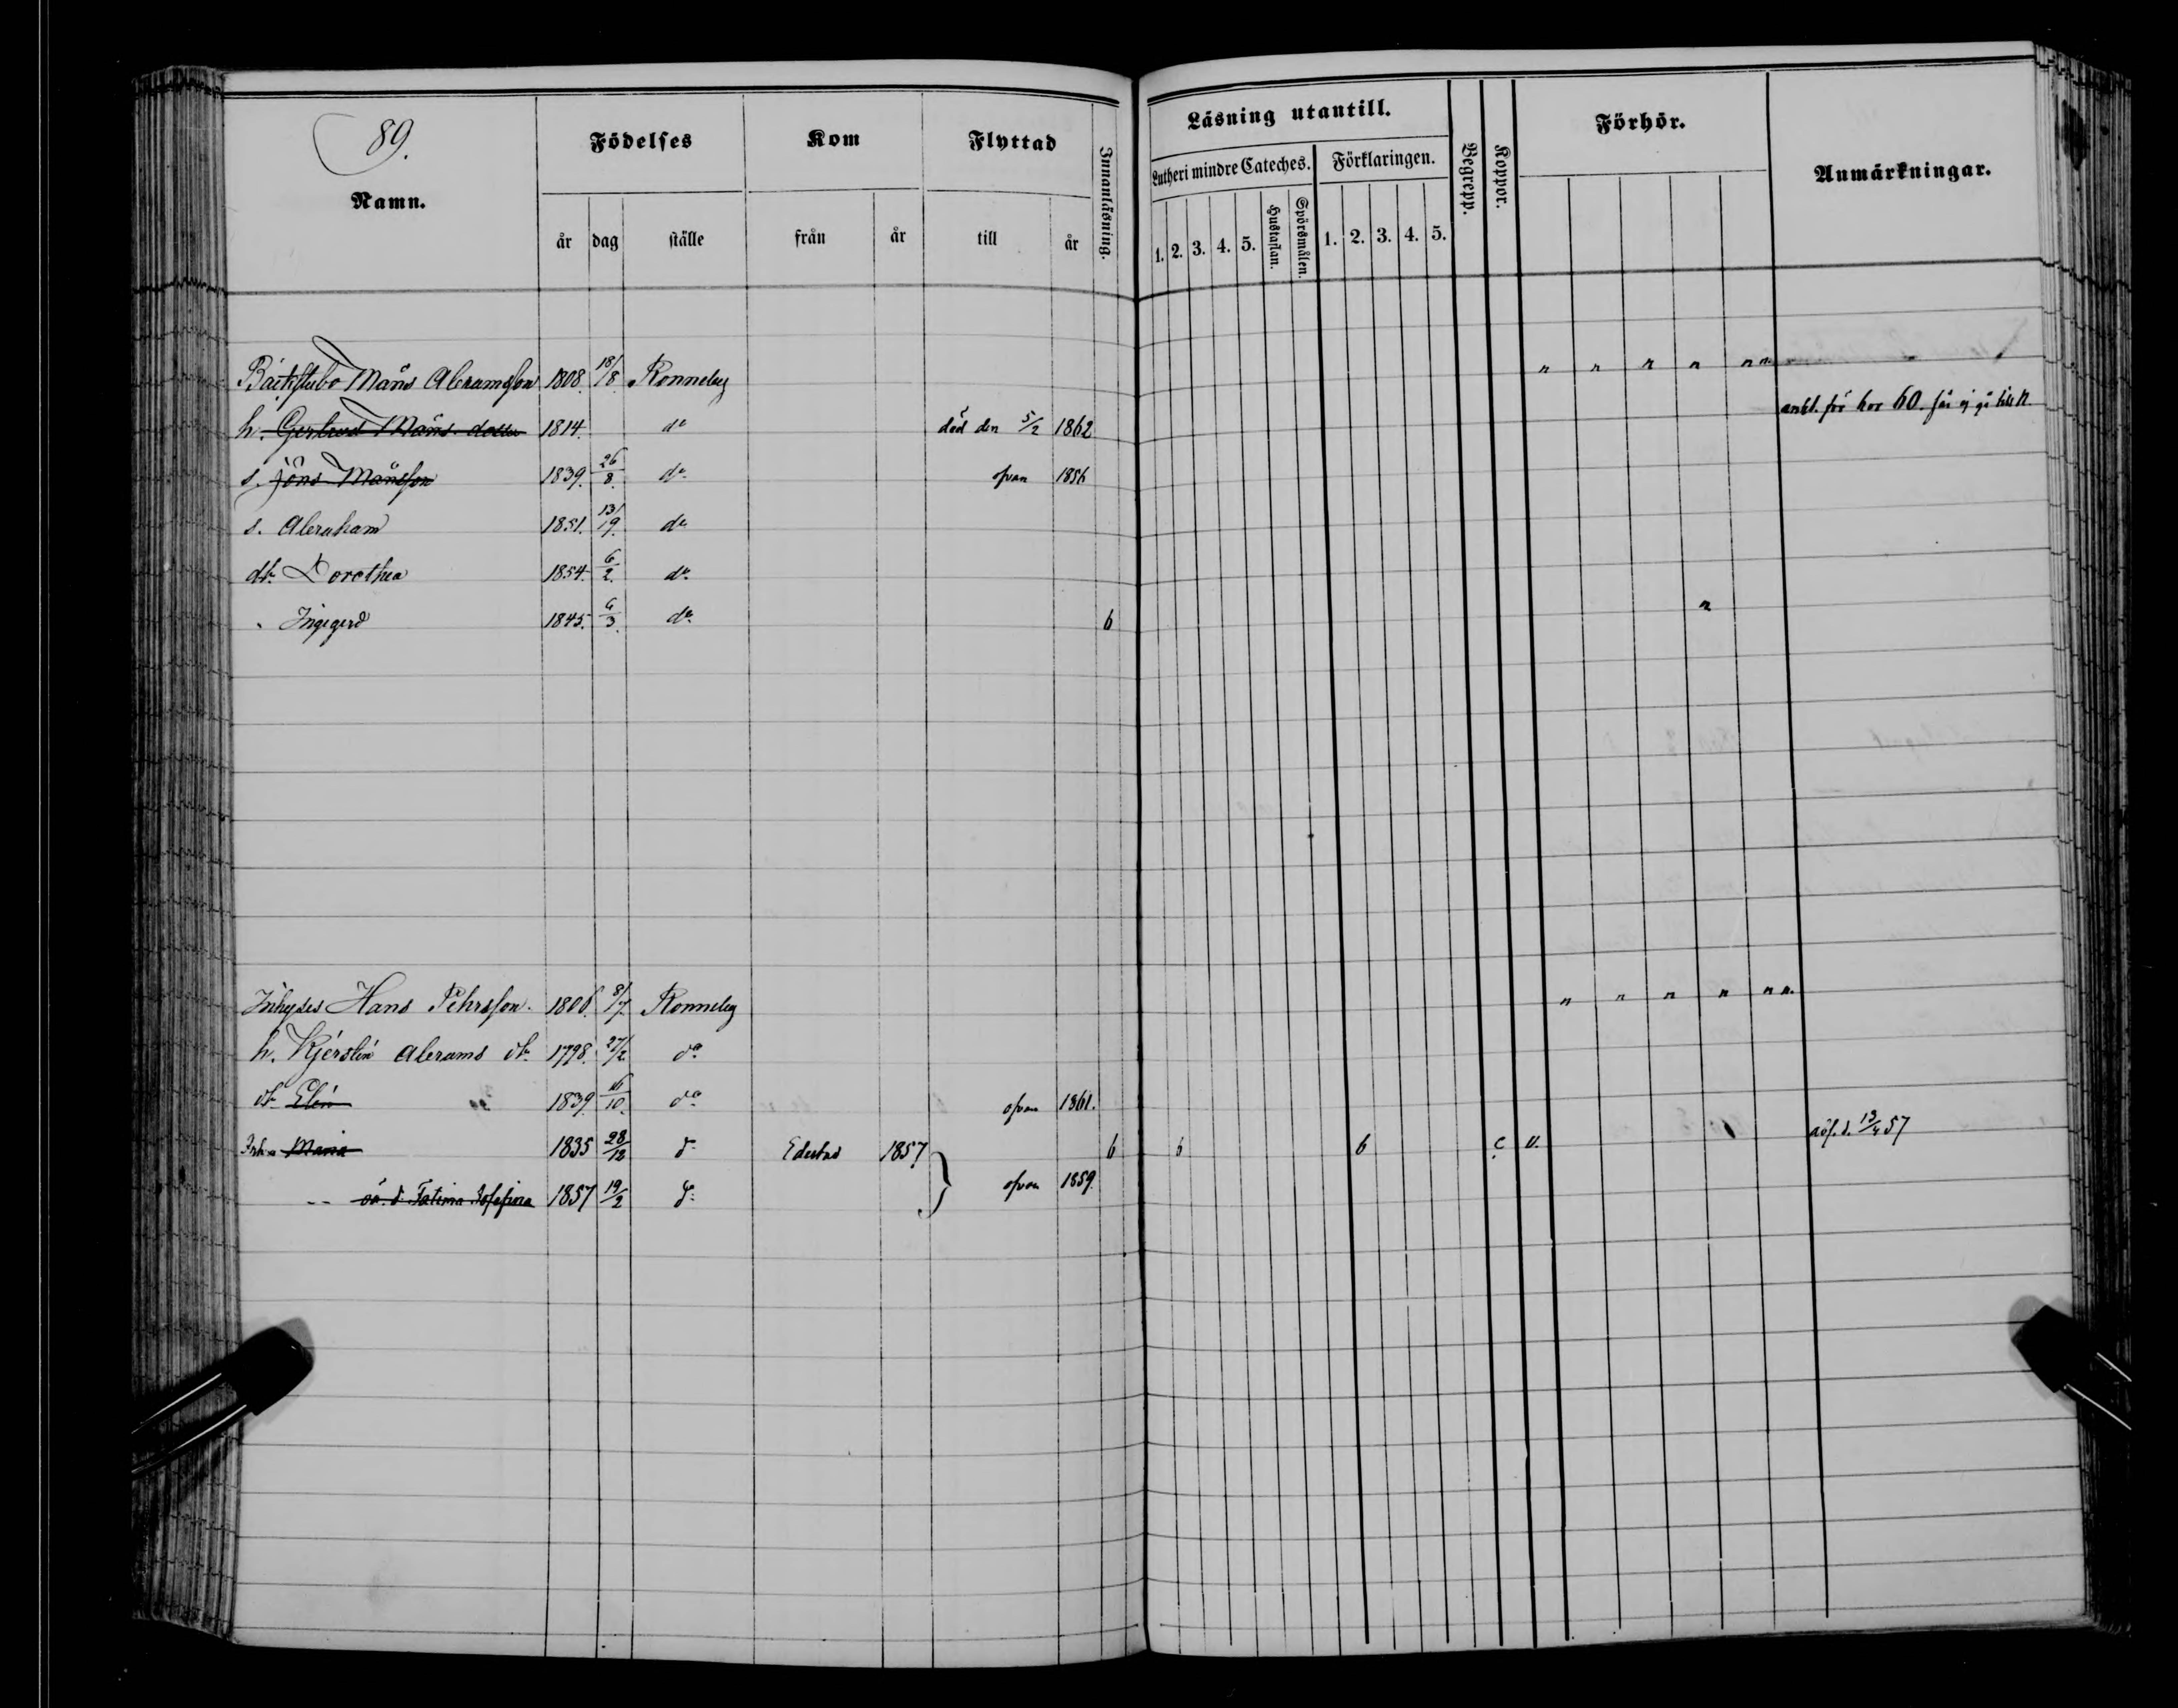 89.
Namn.
Födelses
år dag ställe
Kom
från år
Flyttad
till år
Innanläsning.
Läsning utantill.
Lutheri mindre Cateches. Förklaringen.
1. 2. 3. 4. 5. Hustaflan. Spörsmålen. 1. 2. 3. 4. 5.
Begrepp.
Koppor.
Förhör.
Anmärkningar.
Måns Abramsson 1808. 18/8. Ronneby n n n n n n
h. Gertrud Måns dotter 1814. do död den 5/2 1862 för hor 60. får ej gå till N.
s. Jöns Månsson 1839. 26/8. do ofvan 1856
s. Abraham 1851. 13/9. do
dr. Dorothea 1854. 6/2. do
" Ingegerd 1845. 6/3. do 6 n
Inhyses Hans Pehrsson. 1806. 8/7. Ronneby n n n n n n.
h. Kjerstin Abrams dr. 1798. 27/2 do
dr. Elin 1839. 16/10. do ofvan 1861.
Inh. Maria 1835 28/12 do Edestad 1857 6 6 6 c v. 13/4 57
oä. d. Fatima Josefina 1857 19/2 do ofvan 1859.